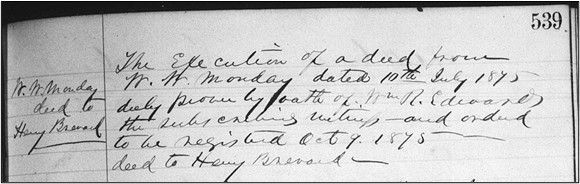 539
W. W. Monday
deed to
Henry Brevard
The Execution of a deed from
W. W. Monday dated 10th July 1875
duly proven by oath of Wm R. Edwards
the subscribing witness and ordered
to be registered Oct 9. 1875
deed to Henry Brevard